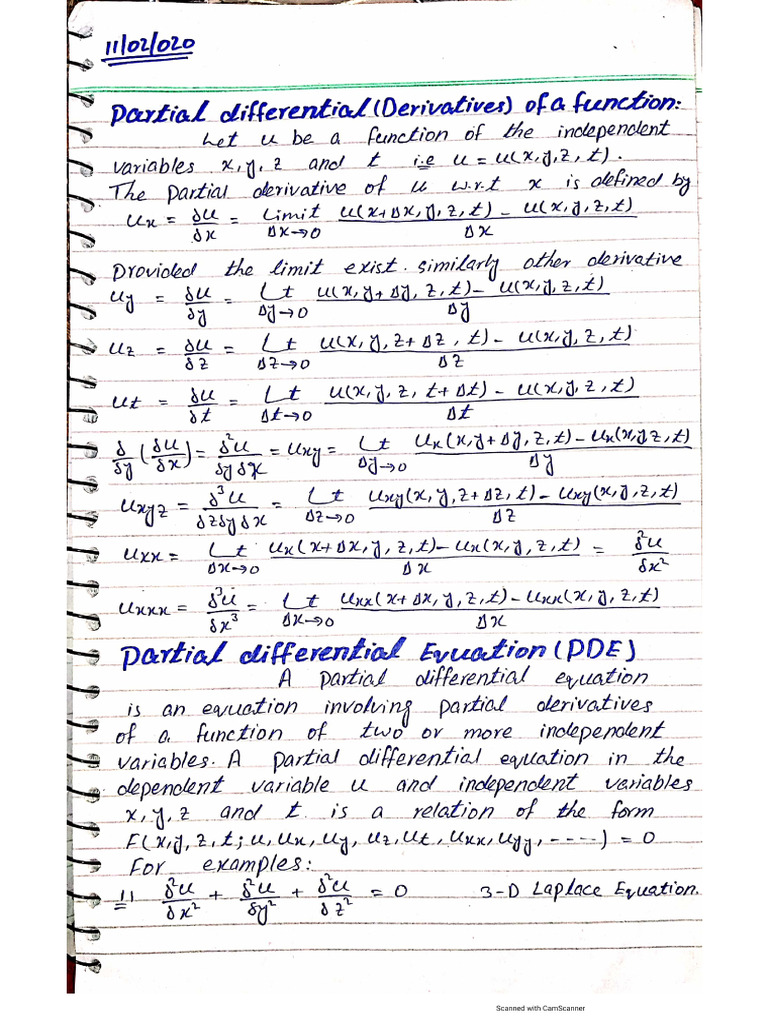 11/02/020
Partial differential (Derivatives) of a function:
Let u be a function of the independent
variables x, y, z and t i.e u = u(x,y,z,t).
The partial derivative of u w.r.t x is defined by
ux = δu/δx = Limit Δx→0 u(x+Δx,y,z,t) - u(x,y,z,t) / Δx
Provided the limit exist. similarly other derivative
uy = δu/δy = Lt Δy→0 u(x,y+Δy,z,t) - u(x,y,z,t) / Δy
uz = δu/δz = Lt Δz→0 u(x,y,z+Δz,t) - u(x,y,z,t) / Δz
ut = δu/δt = Lt Δt→0 u(x,y,z,t+Δt) - u(x,y,z,t) / Δt
δ/δy (δu/δx) = δ²u/δyδx = uxy = Lt Δy→0 ux(x,y+Δy,z,t) - ux(x,y,z,t) / Δy
uxyz = δ³u/δzδyδx = Lt Δz→0 uxy(x,y,z+Δz,t) - uxy(x,y,z,t) / Δz
uxx = Lt Δx→0 ux(x+Δx,y,z,t) - ux(x,y,z,t) / Δx = δ²u/δx²
uxxx = δ³u/δx³ = Lt Δx→0 uxx(x+Δx,y,z,t) - uxx(x,y,z,t) / Δx
Partial differential Equation (PDE)
A partial differential equation
is an equation involving partial derivatives
of a function of two or more independent
variables. A partial differential equation in the
dependent variable u and independent variables
x, y, z and t is a relation of the form
F(x,y,z,t; u, ux, uy, uz, ut, uxx, uyy, ----) = 0
For examples:
1) δ²u/δx² + δ²u/δy² + δ²u/δz² = 0 3-D Laplace Equation.
Scanned with CamScanner